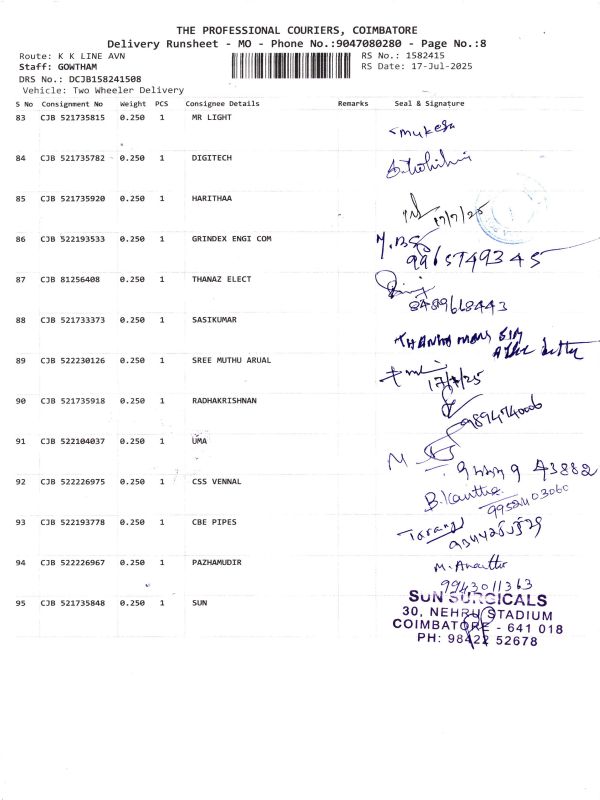 THE PROFESSIONAL COURIERS, COIMBATORE
Delivery Runsheet - MO - Phone No.:9047080280 - Page No.:8
Route: K K LINE AVN RS No.: 1582415
Staff: GOWTHAM RS Date: 17-Jul-2025
DRS No.: DCJB158241508
Vehicle: Two Wheeler Delivery
S No Consignment No Weight PCS Consignee Details Remarks Seal & Signature
83 CJB 521735815 0.250 1 MR LIGHT
84 CJB 521735782 0.250 1 DIGITECH
85 CJB 521735920 0.250 1 HARITHAA
17/7/25
86 CJB 522193533 0.250 1 GRINDEX ENGI COM
9965749345
87 CJB 81256408 0.250 1 THANAZ ELECT
8489668443
88 CJB 521733373 0.250 1 SASIKUMAR
89 CJB 522230126 0.250 1 SREE MUTHU ARUAL
17/7/25
90 CJB 521735918 0.250 1 RADHAKRISHNAN
9894740006
91 CJB 522104037 0.250 1 UMA
92 CJB 522226975 0.250 1 CSS VENNAL
B. Kavitha
9952403060
93 CJB 522193778 0.250 1 CBE PIPES
94 CJB 522226967 0.250 1 PAZHAMUDIR
9943011363
95 CJB 521735848 0.250 1 SUN
SUN SURGICALS
30, NEHRU STADIUM
COIMBATORE - 641 018
PH: 98422 52678